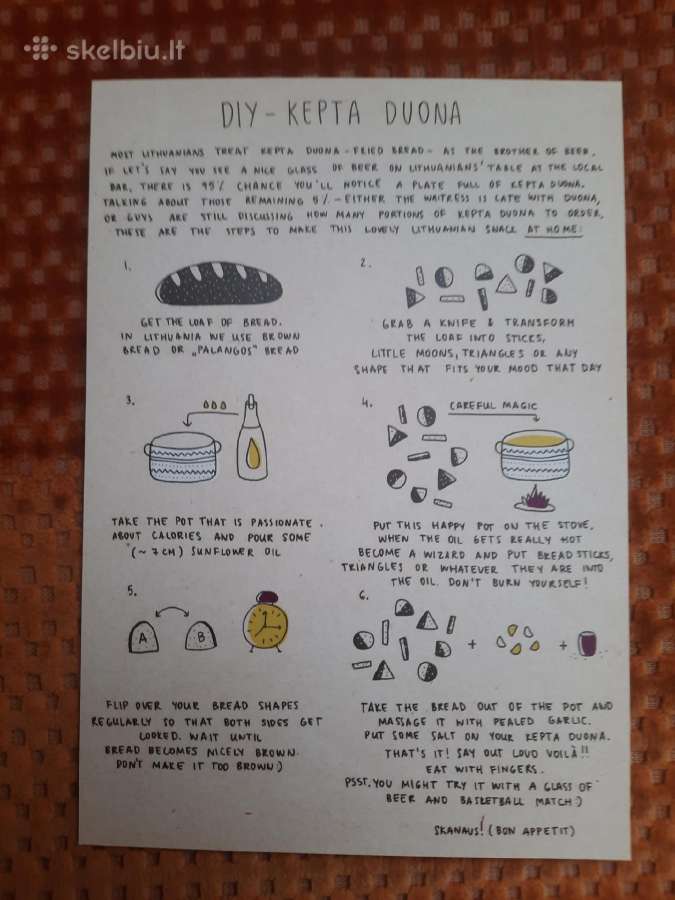 skelbiu.lt
DIY - KEPTA DUONA
MOST LITHUANIANS TREAT KEPTA DUONA - FRIED BREAD - AS THE BROTHER OF BEER.
IF LET'S SAY YOU SEE A NICE GLASS OF BEER ON LITHUANIANS' TABLE AT THE LOCAL
BAR, THERE IS 95% CHANCE YOU'LL NOTICE A PLATE FULL OF KEPTA DUONA.
TALKING ABOUT THOSE REMAINING 5% - EITHER THE WAITRESS IS LATE WITH DUONA,
OR GUYS ARE STILL DISCUSSING HOW MANY PORTIONS OF KEPTA DUONA TO ORDER.
THESE ARE THE STEPS TO MAKE THIS LOVELY LITHUANIAN SNACK AT HOME:
1.
GET THE LOAF OF BREAD.
IN LITHUANIA WE USE BROWN
BREAD OR „PALANGOS" BREAD
2.
GRAB A KNIFE & TRANSFORM
THE LOAF INTO STICKS,
LITTLE MOONS, TRIANGLES OR ANY
SHAPE THAT FITS YOUR MOOD THAT DAY
3.
TAKE THE POT THAT IS PASSIONATE
ABOUT CALORIES AND POUR SOME
(~ 7CM) SUNFLOWER OIL
4.
CAREFUL MAGIC
PUT THIS HAPPY POT ON THE STOVE,
WHEN THE OIL GETS REALLY HOT
BECOME A WIZARD AND PUT BREAD STICKS,
TRIANGLES OR WHATEVER THEY ARE INTO
THE OIL. DON'T BURN YOURSELF!
5.
A B
FLIP OVER YOUR BREAD SHAPES
REGULARLY SO THAT BOTH SIDES GET
COOKED. WAIT UNTIL
BREAD BECOMES NICELY BROWN.
DON'T MAKE IT TOO BROWN:)
6.
+ +
TAKE THE BREAD OUT OF THE POT AND
MASSAGE IT WITH PEALED GARLIC.
PUT SOME SALT ON YOUR KEPTA DUONA.
THAT'S IT! SAY OUT LOUD VOILÀ!!
EAT WITH FINGERS.
PSST, YOU MIGHT TRY IT WITH A GLASS OF
BEER AND BASKETBALL MATCH:)
SKANAUS! (BON APPETIT)